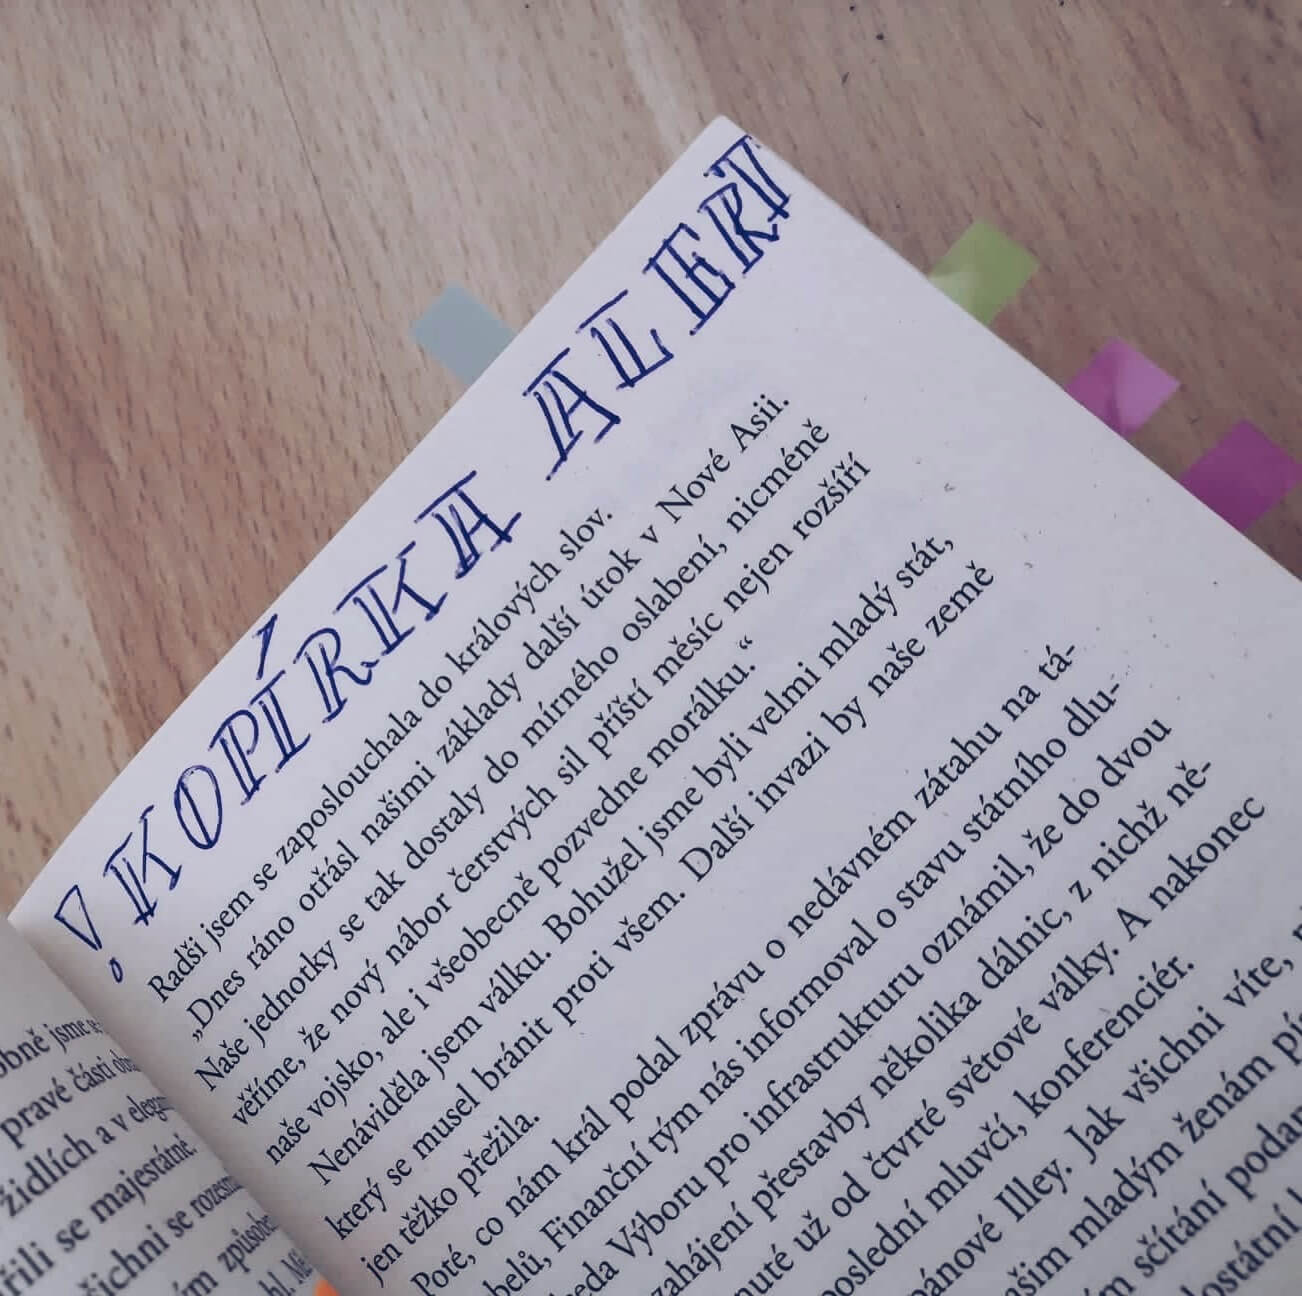 ! KOPÍRKA ALERT
Radši jsem se zaposlouchala do králových slov.
„Dnes ráno otřásl našimi základy další útok v Nové Asii.
Naše jednotky se tak dostaly do mírného oslabení, nicméně
věříme, že nový nábor čerstvých sil příští měsíc nejen rozšíří
naše vojsko, ale i všeobecně pozvedne morálku.“
Nenáviděla jsem válku. Bohužel jsme byli velmi mladý stát,
který se musel bránit proti všem. Další invazi by naše země
jen těžko přežila.
Poté, co nám král podal zprávu o nedávném zátahu na tá-
belů, Finanční tým nás informoval o stavu státního dlu-
eda Výboru pro infrastrukturu oznámil, že do dvou
zahájení přestavby několika dálnic, z nichž ně-
nuté už od čtvrté světové války. A nakonec
poslední mluvčí, konferenciér.
pánové Illey. Jak všichni víte,
ašim mladým ženám
sčítání
obně jsme
pravé části
židlích a v
řili se majestátně.
šichni se